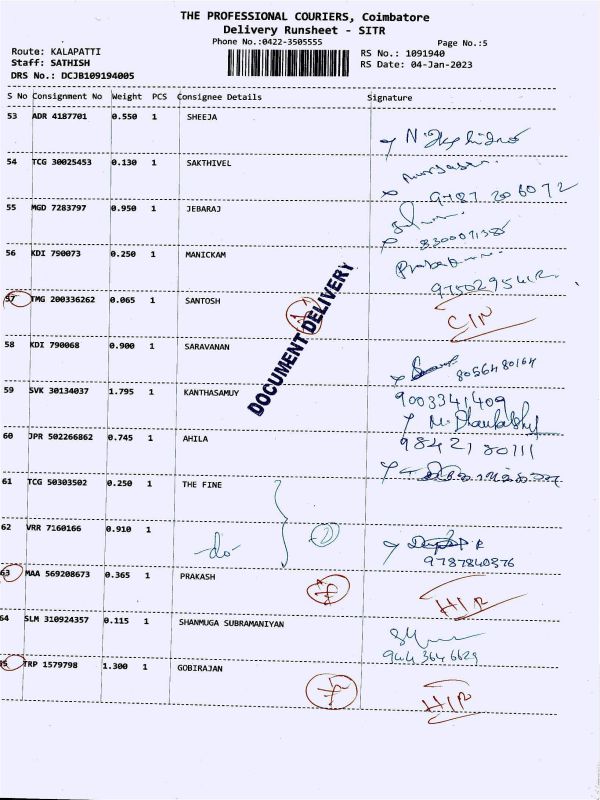 THE PROFESSIONAL COURIERS, Coimbatore
Delivery Runsheet - SITR
Phone No.:0422-3505555
Page No.:5
Route: KALAPATTI
Staff: SATHISH
DRS No.: DCJB109194005
RS No.: 1091940
RS Date: 04-Jan-2023
S No Consignment No Weight PCS Consignee Details Signature
53 ADR 4187701 0.550 1 SHEEJA
54 TCG 30025453 0.130 1 SAKTHIVEL
9787 206072
55 MGD 7283797 0.950 1 JEBARAJ
56 KDI 790073 0.250 1 MANICKAM
57 TMG 200336262 0.065 1 SANTOSH
DOCUMENT DELIVERY
58 KDI 790068 0.900 1 SARAVANAN
8056480164
59 SVK 30134037 1.795 1 KANTHASAMUY
9003341409
60 JPR 502266862 0.745 1 AHILA
98421 80111
61 TCG 50303502 0.250 1 THE FINE
62 VRR 7160166 0.910 1 -do-
9787840376
63 MAA 569208673 0.365 1 PRAKASH
64 SLM 310924357 0.115 1 SHANMUGA SUBRAMANIYAN
944 364 6629
TRP 1579798 1.300 1 GOBIRAJAN